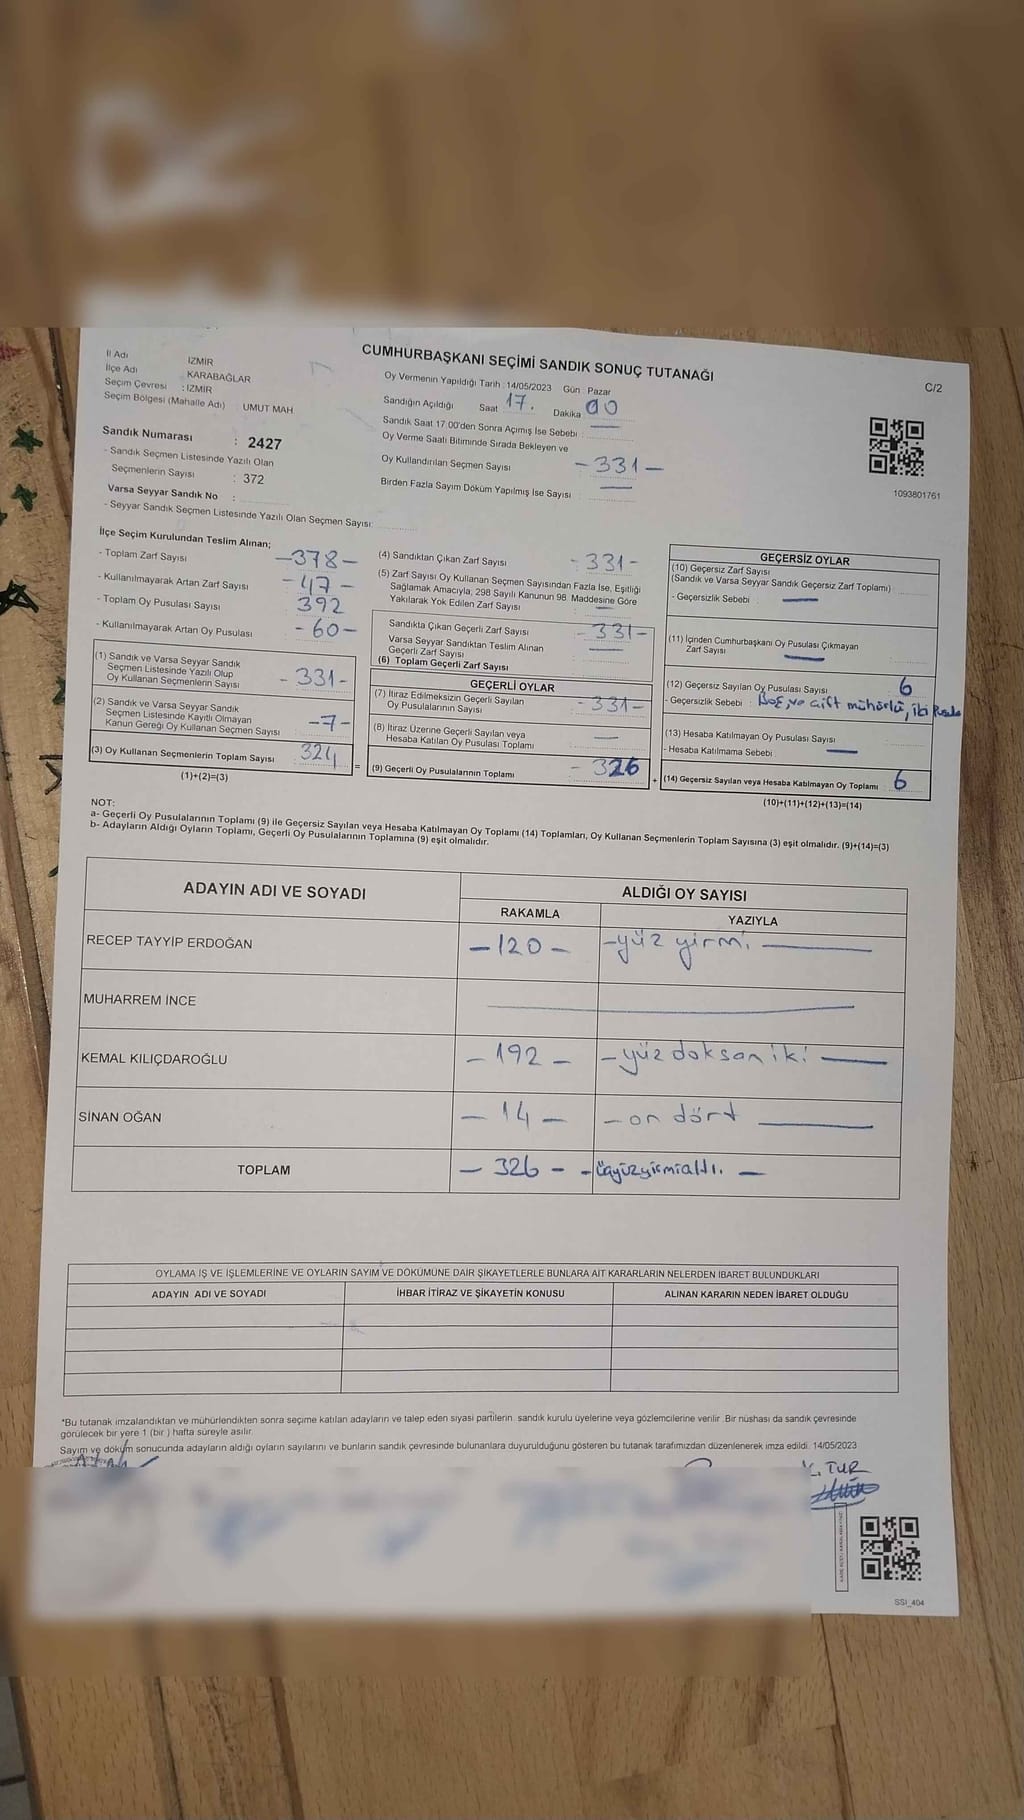 CUMHURBAŞKANI SEÇİMİ SANDIK SONUÇ TUTANAĞI
C/2
İl Adı IZMİR
İlçe Adı KARABAĞLAR
Seçim Çevresi : IZMİR
Seçim Bölgesi (Mahalle Adı) UMUT MAH
Sandık Numarası : 2427
- Sandık Seçmen Listesinde Yazılı Olan
Seçmenlerin Sayısı : 372
Varsa Seyyar Sandık No :
- Seyyar Sandık Seçmen Listesinde Yazılı Olan Seçmen Sayısı:
Oy Vermenin Yapıldığı Tarih : 14/05/2023 Gün : Pazar
Sandığın Açıldığı Saat 17. Dakika 00
Sandık Saat 17.00'den Sonra Açımış İse Sebebi :
Oy Verme Saati Bitiminde Sırada Bekleyen ve
Oy Kullandırılan Seçmen Sayısı - 331 -
Birden Fazla Sayım Döküm Yapılmış İse Sayısı
1093801761
İlçe Seçim Kurulundan Teslim Alınan;
- Toplam Zarf Sayısı - 378 -
- Kullanılmayarak Artan Zarf Sayısı - 47 -
- Toplam Oy Pusulası Sayısı 392
- Kullanılmayarak Artan Oy Pusulası - 60 -
(1) Sandık ve Varsa Seyyar Sandık
Seçmen Listesinde Yazılı Olup
Oy Kullanan Seçmenlerin Sayısı - 331 -
(2) Sandık ve Varsa Seyyar Sandık
Seçmen Listesinde Kayıtlı Olmayan
Kanun Gereği Oy Kullanan Seçmen Sayısı - 7 -
(3) Oy Kullanan Seçmenlerin Toplam Sayısı 324
(1)+(2)=(3)
=
(4) Sandıktan Çıkan Zarf Sayısı - 331 -
(5) Zarf Sayısı Oy Kullanan Seçmen Sayısından Fazla İse, Eşitliği
Sağlamak Amacıyla, 298 Sayılı Kanunun 98. Maddesine Göre
Yakılarak Yok Edilen Zarf Sayısı
Sandıkta Çıkan Geçerli Zarf Sayısı - 331 -
Varsa Seyyar Sandıktan Teslim Alınan
Geçerli Zarf Sayısı
(6) Toplam Geçerli Zarf Sayısı
GEÇERLİ OYLAR
(7) İtiraz Edilmeksizin Geçerli Sayılan
Oy Pusulalarının Sayısı - 331 -
(8) İtiraz Üzerine Geçerli Sayılan veya
Hesaba Katılan Oy Pusulası Toplamı
(9) Geçerli Oy Pusulalarının Toplamı - 326
+
GEÇERSİZ OYLAR
(10) Geçersiz Zarf Sayısı
(Sandık ve Varsa Seyyar Sandık Geçersiz Zarf Toplamı)
- Geçersizlik Sebebi :
(11) İçinden Cumhurbaşkanı Oy Pusulası Çıkmayan
Zarf Sayısı
(12) Geçersiz Sayılan Oy Pusulası Sayısı 6
- Geçersizlik Sebebi : Boş, ve çift mühürlü, iki Pusula
(13) Hesaba Katılmayan Oy Pusulası Sayısı
- Hesaba Katılmama Sebebi :
(14) Geçersiz Sayılan veya Hesaba Katılmayan Oy Toplamı 6
(10)+(11)+(12)+(13)=(14)
NOT:
a- Geçerli Oy Pusulalarının Toplamı (9) ile Geçersiz Sayılan veya Hesaba Katılmayan Oy Toplamı (14) Toplamları, Oy Kullanan Seçmenlerin Toplam Sayısına (3) eşit olmalıdır. (9)+(14)=(3)
b- Adayların Aldığı Oyların Toplamı, Geçerli Oy Pusulalarının Toplamına (9) eşit olmalıdır.
ADAYIN ADI VE SOYADI ALDIĞI OY SAYISI
RAKAMLA YAZIYLA
RECEP TAYYİP ERDOĞAN - 120 - - yüz yirmi
MUHARREM İNCE
KEMAL KILIÇDAROĞLU - 192 - - yüz doksan iki
SİNAN OĞAN - 14 - - on dört
TOPLAM - 326 - - üçyüzyirmialtı. -
OYLAMA İŞ VE İŞLEMLERİNE VE OYLARIN SAYIM VE DÖKÜMÜNE DAİR ŞİKAYETLERLE BUNLARA AİT KARARLARIN NELERDEN İBARET BULUNDUKLARI
ADAYIN ADI VE SOYADI İHBAR İTİRAZ VE ŞİKAYETİN KONUSU ALINAN KARARIN NEDEN İBARET OLDUĞU
*Bu tutanak imzalandıktan ve mühürlendikten sonra seçime katılan adayların ve talep eden siyasi partilerin sandık kurulu üyelerine veya gözlemcilerine verilir. Bir nüshası da sandık çevresinde
görülecek bir yere 1 (bir) hafta süreyle asılır.
Sayım ve döküm sonucunda adayların aldığı oyların sayılarını ve bunların sandık çevresinde bulunanlara duyurulduğunu gösteren bu tutanak tarafımızdan düzenlenerek imza edildi. 14/05/2023
TUR
SSI_404